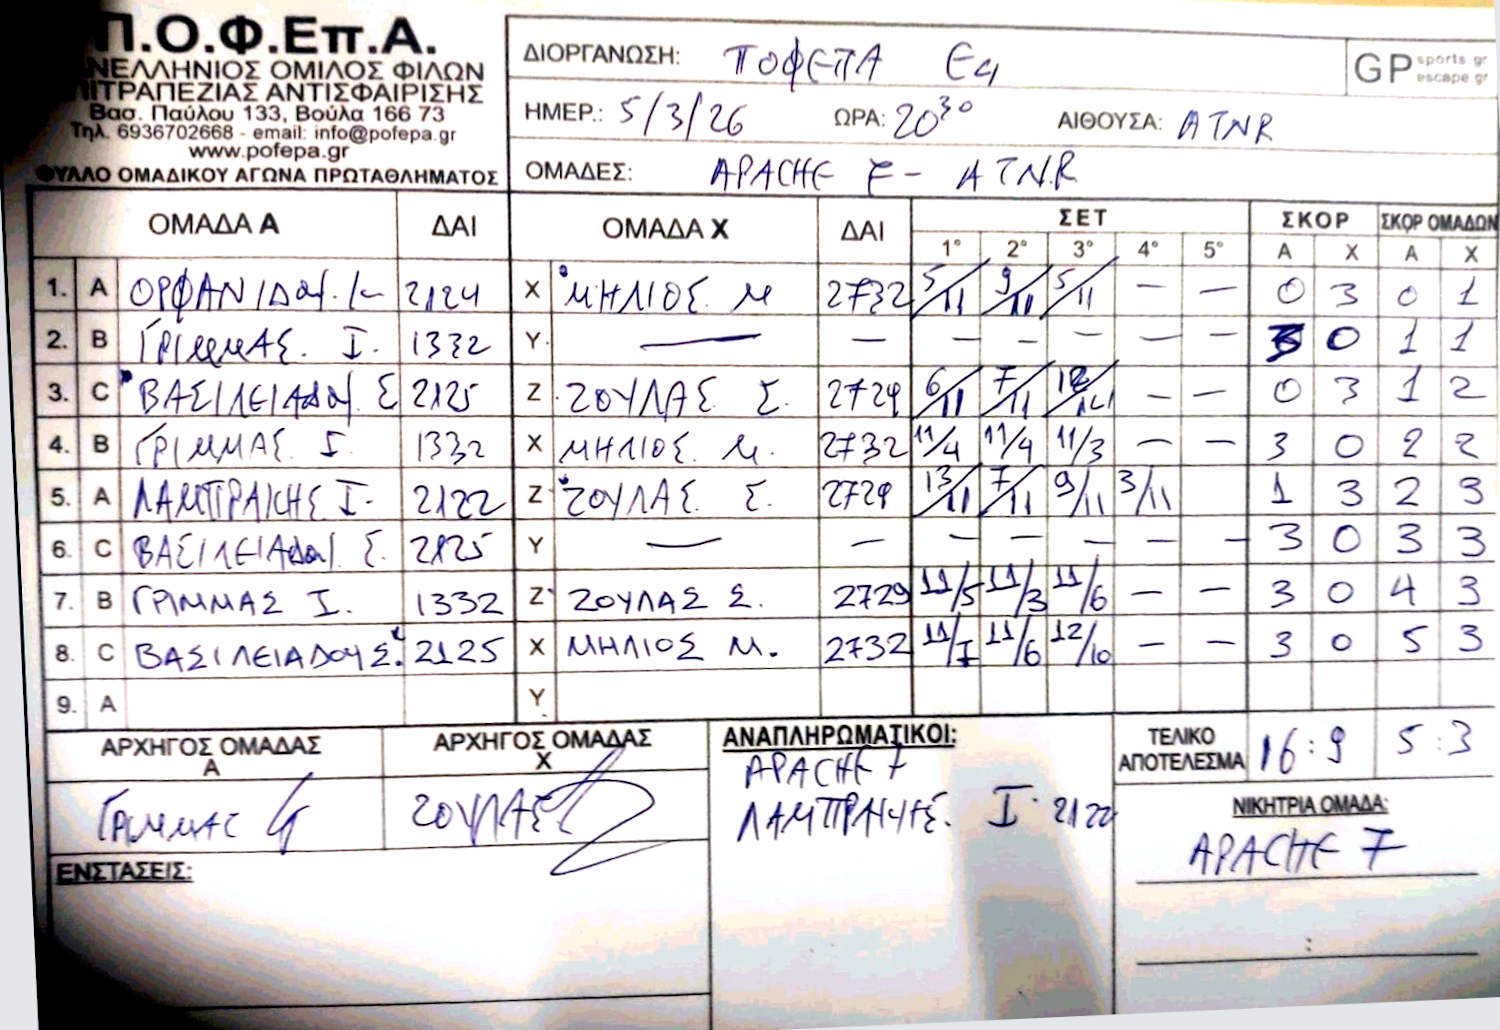 Π.Ο.Φ.Επ.Α.
ΝΕΛΛΗΝΙΟΣ ΟΜΙΛΟΣ ΦΙΛΩΝ
ΙΤΡΑΠΕΖΙΑΣ ΑΝΤΙΣΦΑΙΡΙΣΗΣ
Βασ. Παύλου 133, Βούλα 166 73
Τηλ. 6936702668 - email: info@pofepa.gr
www.pofepa.gr
ΦΥΛΛΟ ΟΜΑΔΙΚΟΥ ΑΓΩΝΑ ΠΡΩΤΑΘΛΗΜΑΤΟΣ
ΔΙΟΡΓΑΝΩΣΗ: ΠΟΦΕΠΑ
GP sports gr escape gr
ΗΜΕΡ.: 5/3/26 ΩΡΑ: 20³⁰ ΑΙΘΟΥΣΑ: ATNR
ΟΜΑΔΕΣ: APACHE F - ATNR
ΟΜΑΔΑ Α ΔΑΙ ΟΜΑΔΑ Χ ΔΑΙ ΣΕΤ ΣΚΟΡ ΣΚΟΡ ΟΜΑΔΩΝ
1° 2° 3° 4° 5° Α Χ Α Χ
1. A 2124 X ΜΗΛΙΟΣ. Μ 2732 5/11 9/11 5/11 — — 0 3 0 1
2. B ΓΡΙΜΜΑΣ. Ι. 1332 Y. — — — — — — — 3 0 1 1
3. C Σ 2125 Z. ΖΟΥΛΑΣ Σ. 2729 6/11 7/11 — — 0 3 1 2
4. B ΓΡΙΜΜΑΣ Ι. 1332 X ΜΗΛΙΟΣ. Μ. 2732 11/4 11/4 11/3 — — 3 0 2 2
5. A ΛΑΜΠΡΑΚΗΣ Ι. 2122 Z ΖΟΥΛΑΣ Σ. 2729 13/11 7/11 9/11 3/11 1 3 2 3
6. C Σ. 2125 Y — — — — — — — 3 0 3 3
7. B ΓΡΙΜΜΑΣ Ι. 1332 Z ΖΟΥΛΑΣ Σ. 2729 11/5 11/3 11/6 — — 3 0 4 3
8. C ΒΑΣΙΛΕΙΑΔΟΥ Σ. 2125 X ΜΗΛΙΟΣ Μ. 2732 11/7 11/6 12/10 — — 3 0 5 3
9. A Y
ΑΡΧΗΓΟΣ ΟΜΑΔΑΣ Α
ΑΡΧΗΓΟΣ ΟΜΑΔΑΣ Χ
ΑΝΑΠΛΗΡΩΜΑΤΙΚΟΙ:
ΤΕΛΙΚΟ ΑΠΟΤΕΛΕΣΜΑ 16:9 5:3
ΓΡΙΜΜΑΣ
ΖΟΥΛΑΣ
APACHE 7
ΛΑΜΠΡΑΚΗΣ. Ι. 2122
ΝΙΚΗΤΡΙΑ ΟΜΑΔΑ:
APACHE 7
:
ΕΝΣΤΑΣΕΙΣ: